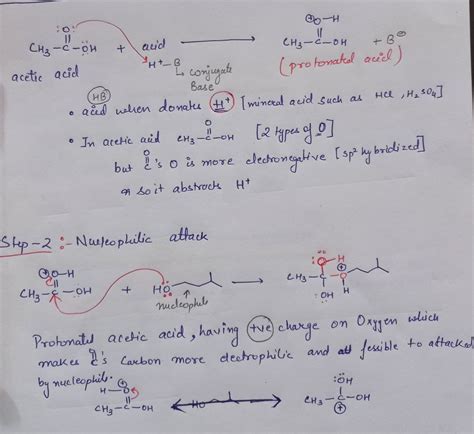 CH₃-C-ÖH + acid ⟶ CH₃-C-OH + B⊖
acetic acid H⁺-B (protonated acid)
↳ conjugate Base
(HB)
• acid when donates H⁺ [mineral acid such as HCl, H₂SO₄]
• In acetic acid CH₃-C-OH [2 types of O]
but C's O is more electronegative [sp² hybridized]
so it abstracts H⁺
Step-2 :- Nucleophilic attack
⊕O-H
CH₃-C-ÖH + HO ⟶ CH₃-C-O
nucleophile
Protonated acetic acid, having +ve charge on Oxygen which
makes C's Carbon more electrophilic and fessible to attacked
by nucleophile.
CH₃-C-OH ⟷ CH₃-C-OH